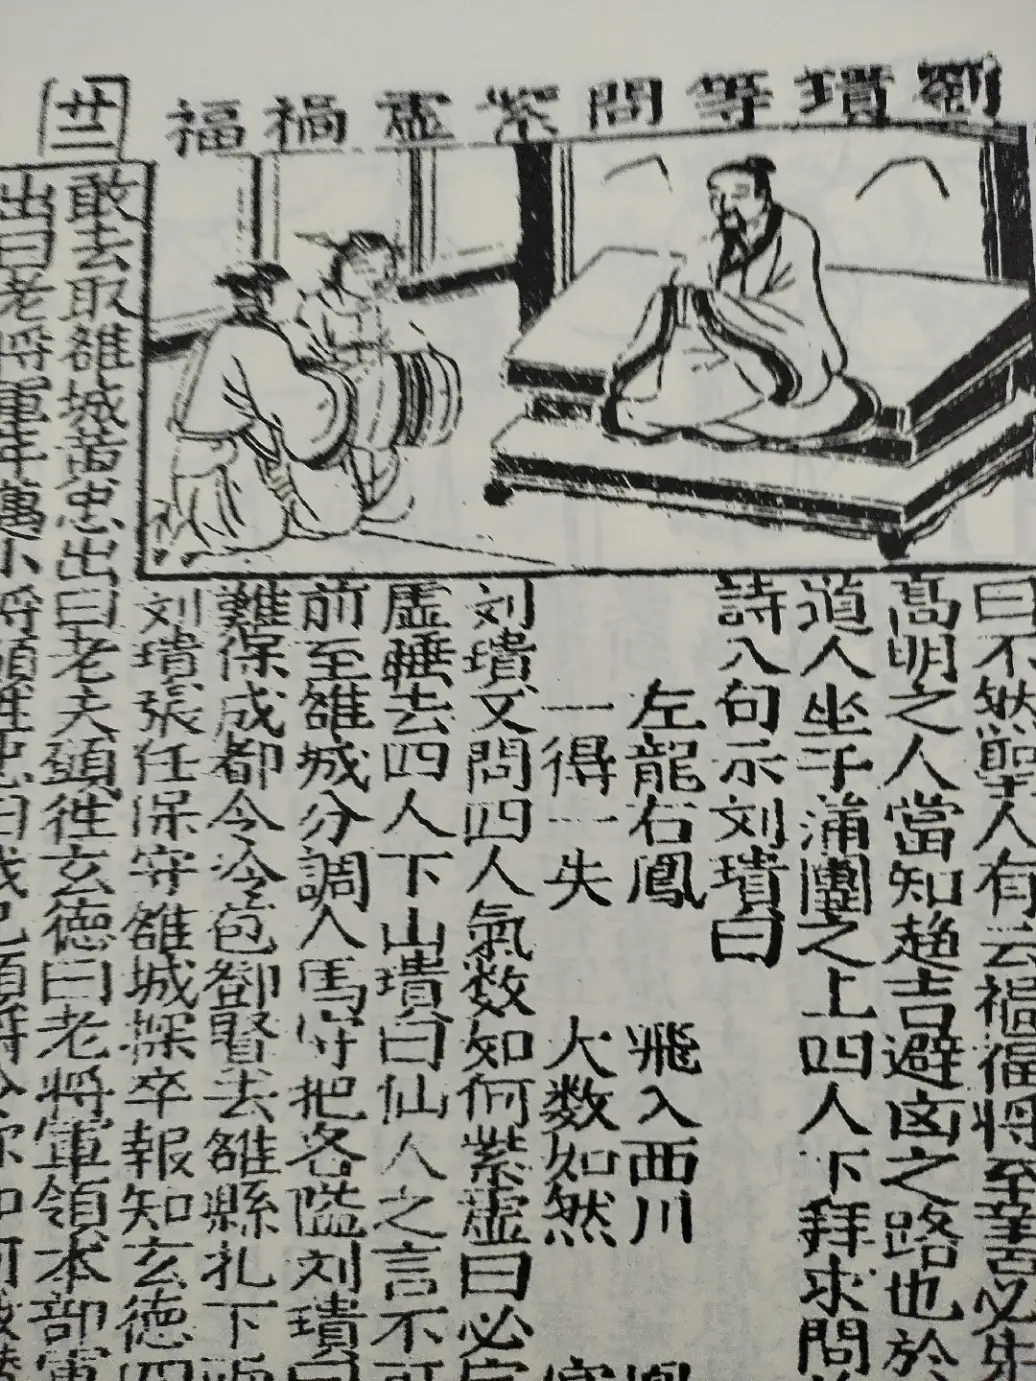 劉璝等問紫虛禍福
廿二
曰不然聖人有云禍福將至善必先
高明之人當知趋吉避凶之路也於
道人坐于蒲團之上四人下拜求問
詩八句示刘璝曰
左龍右鳳 飛入西川
一得一失 大数如然
刘璝又問四人氣数如何紫虛曰必定
虛睡去四人下山璝曰仙人之言不可
前至雒城分調人馬守把各隘刘璝曰
難保成都令冷苞鄧賢去雒縣扎下
刘璝張任保守雒城探卒報知玄德
敢去取雒城黄忠出曰老夫頭徃玄德曰老将軍領本部軍
出曰老将軍年邁小将頭徃忠曰我已領